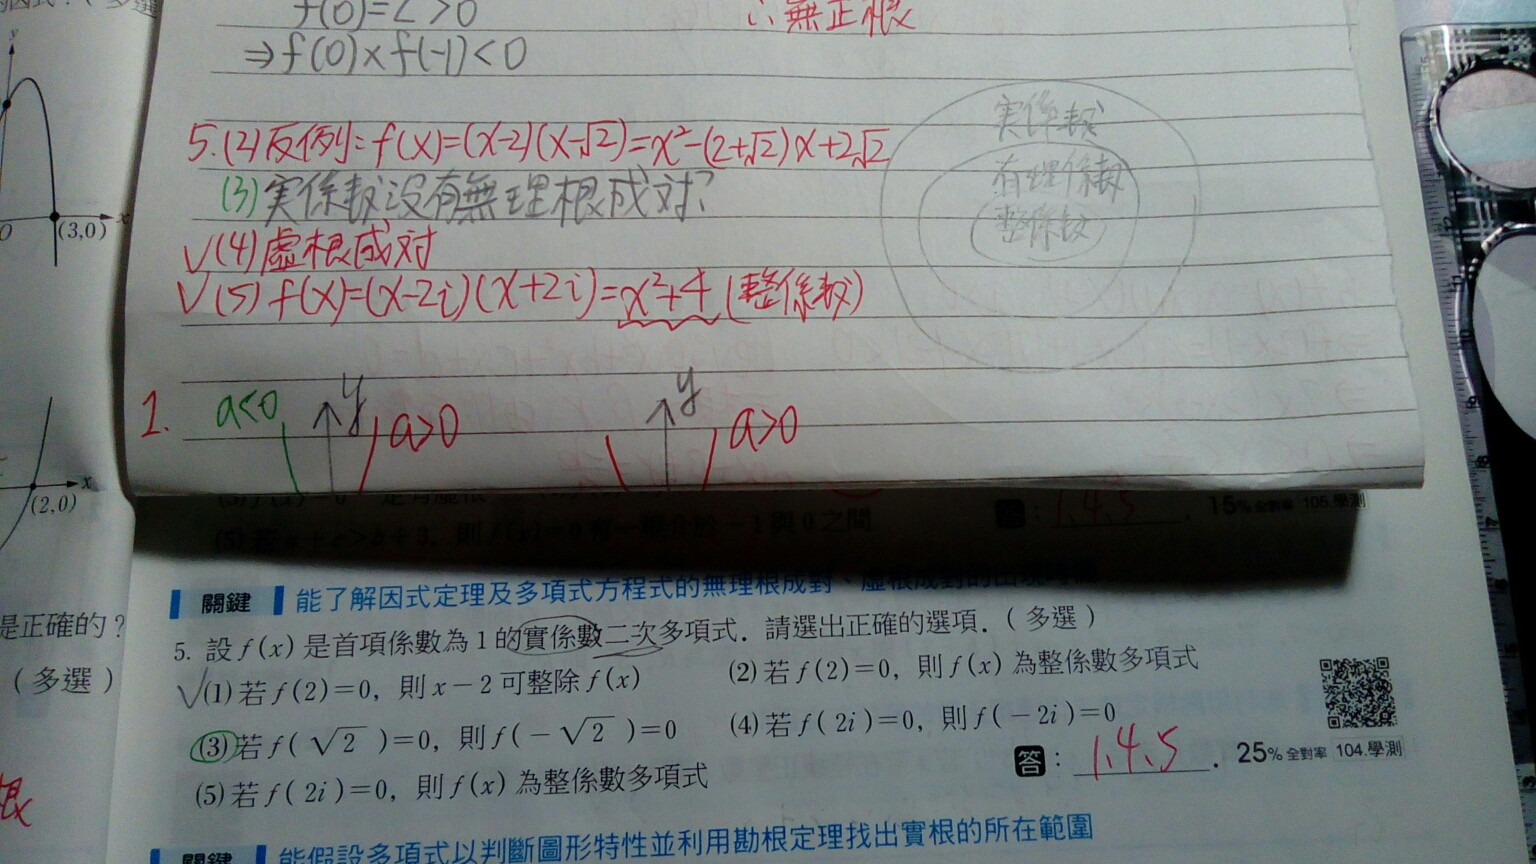 f(0)=2>0
∴無正根
⇒f(0)×f(-1)<0
5.(2)反例:f(x)=(x-2)(x-√2)=x²-(2+√2)x+2√2
(3)実係数没有無理根成対?
✓(4)虛根成対
✓(5)f(x)=(x-2i)(x+2i)=x²+4(整係數)
実係數
有理係數
整係数
1. a<0 y a>0 y a>0
y
O (3,0) x
(2,0) x
是正確的?
(多選)
根
答: 1.4.5. 15% 全對率 105.學測
(5)若a+c>b+3,則f(x)=0有一根介於-1與0之間
關鍵 能了解因式定理及多項式方程式的無理根成對、虛根成對的
5. 設f(x)是首項係數為1的實係數二次多項式.請選出正確的選項.(多選)
✓(1)若f(2)=0,則x-2可整除f(x) (2)若f(2)=0,則f(x)為整係數多項式
(3)若f(√2)=0,則f(-√2)=0 (4)若f(2i)=0,則f(-2i)=0
(5)若f(2i)=0,則f(x)為整係數多項式
答: 1.4.5. 25% 全對率 104.學測
關鍵 能假設多項式以判斷圖形特性並利用勘根定理找出實根的所在範圍